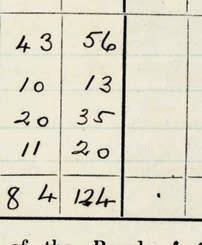 43 56
10 13
20 35
11 20
84 124
of the